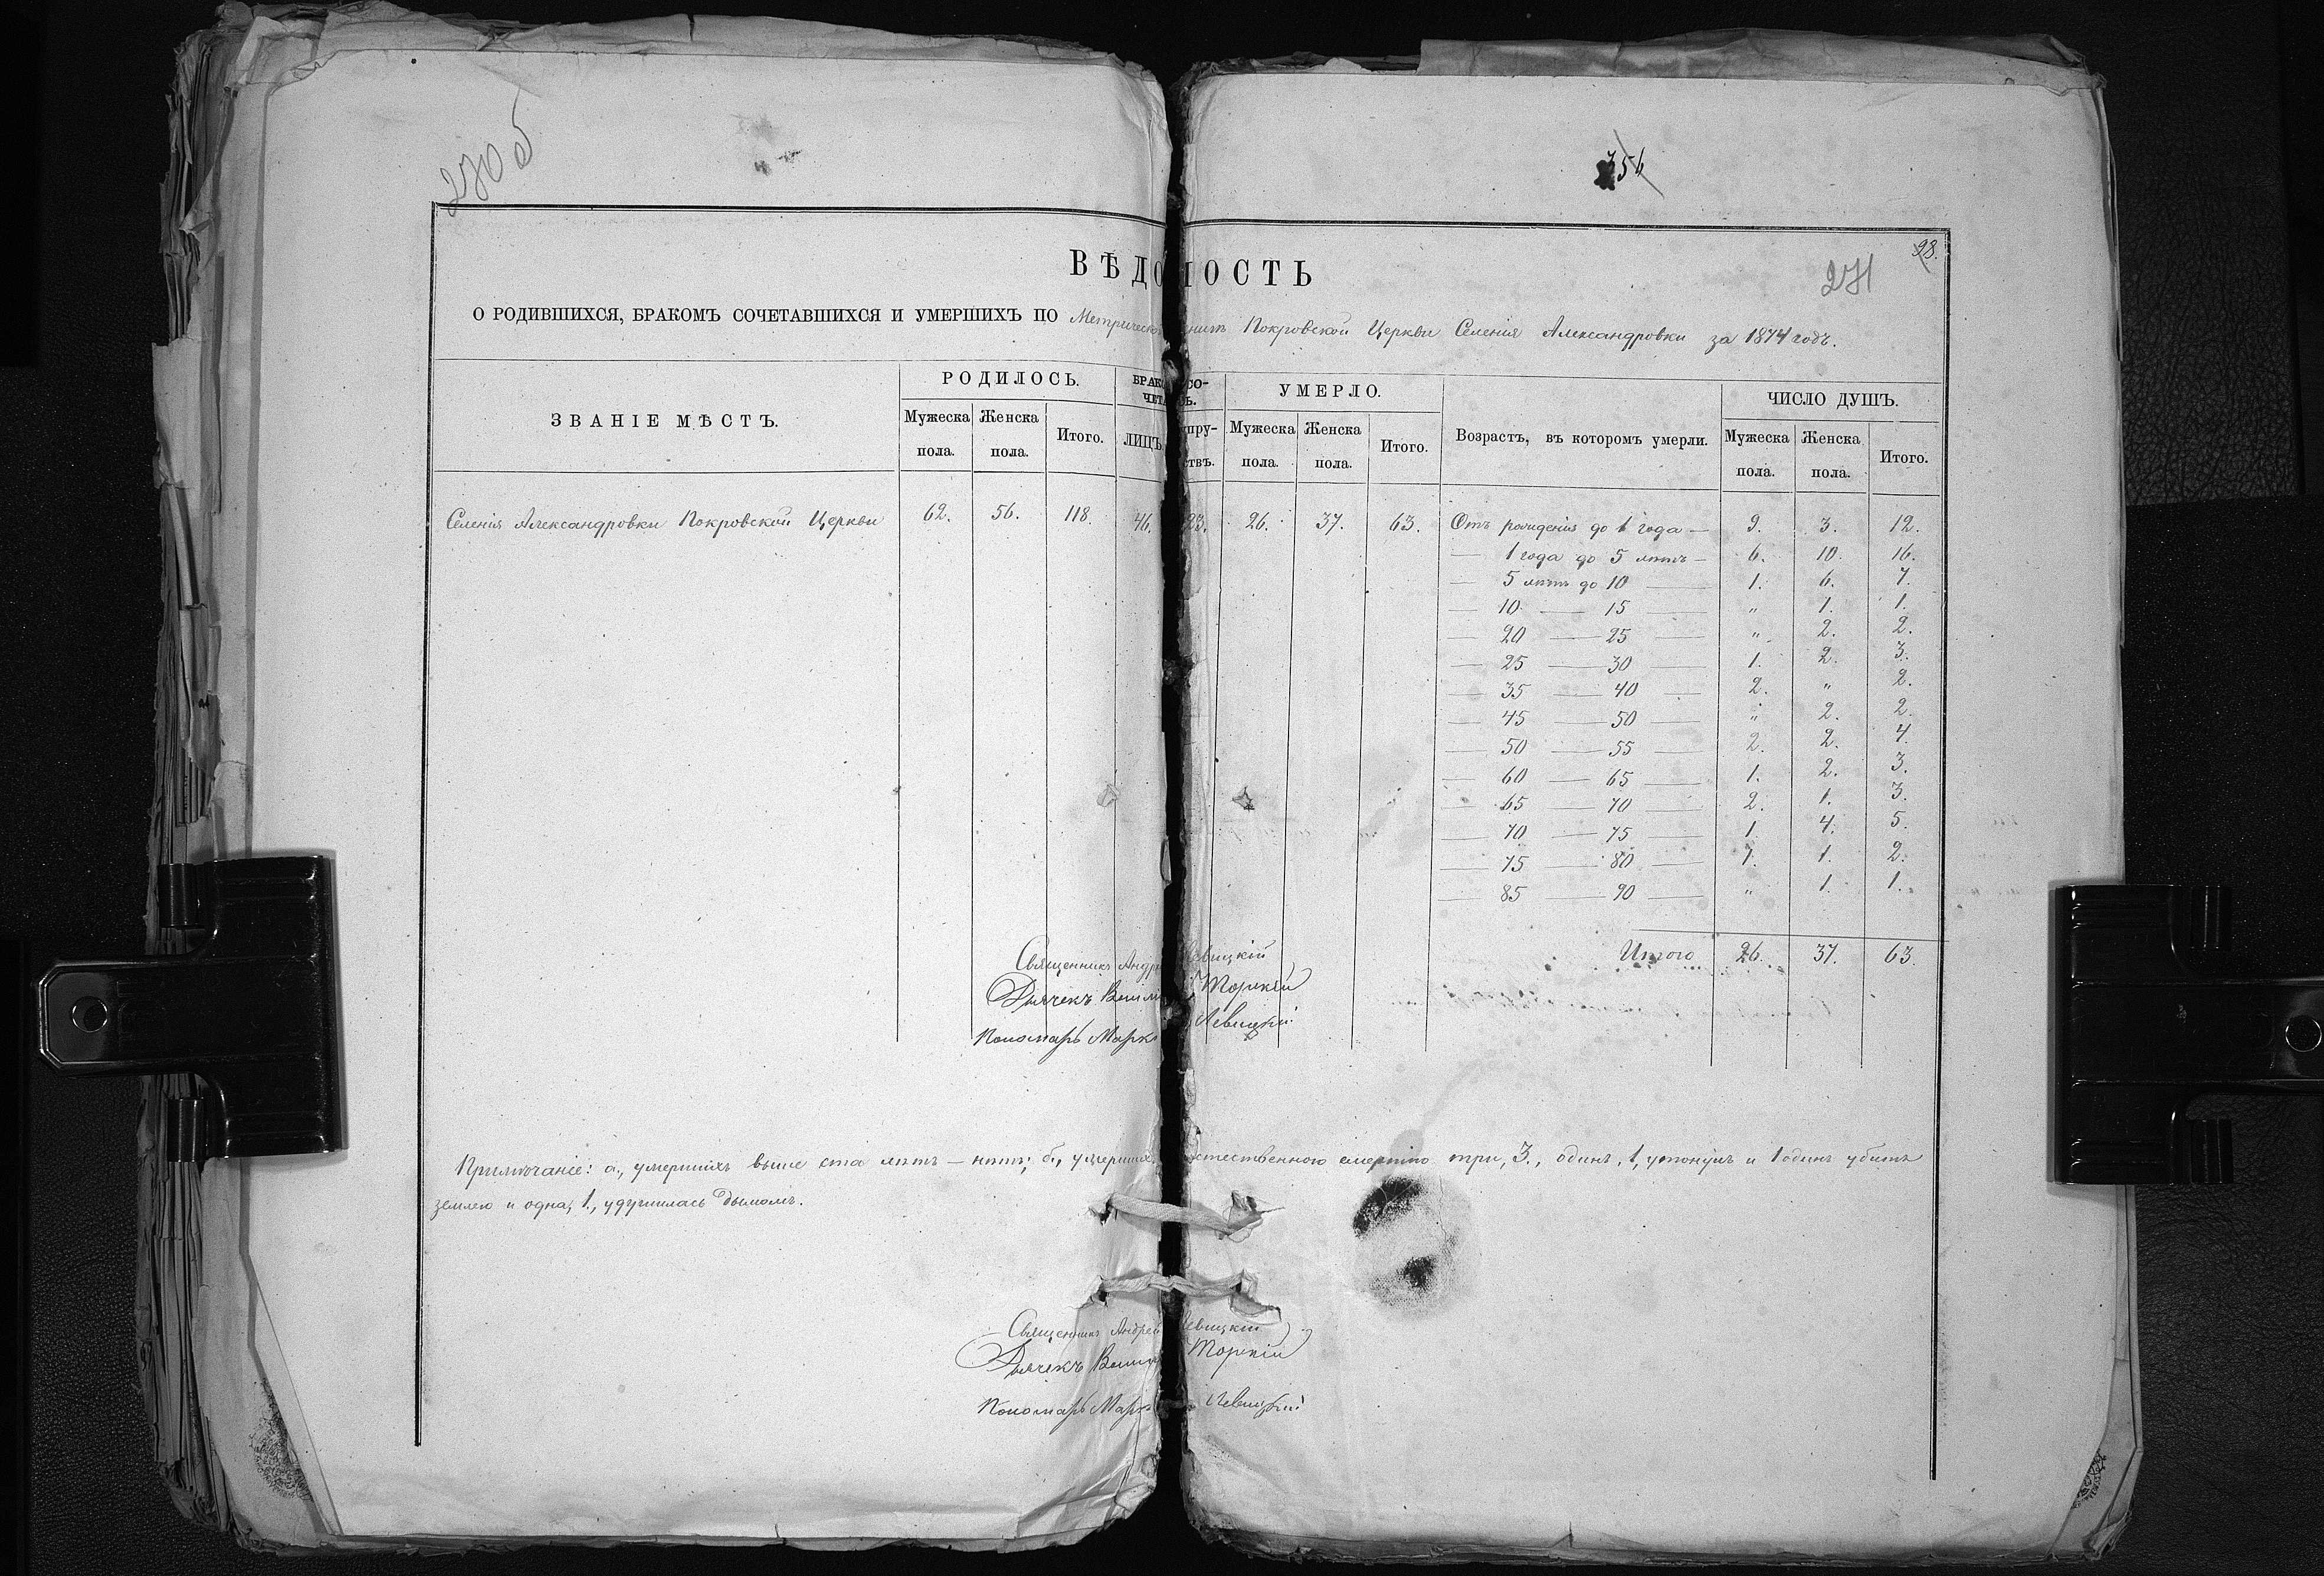 270 об
356
98.
271
ВѢДОМОСТЬ
О РОДИВШИХСЯ, БРАКОМЪ СОЧЕТАВШИХСЯ И УМЕРШИХЪ ПО Метрической книгѣ Покровской Церкви Селенія Александровки за 1874 годъ.
ЗВАНІЕ МѢСТЪ. РОДИЛОСЬ. БРАКОМЪ СО- УМЕРЛО. Возрастъ, въ которомъ умерли. ЧИСЛО ДУШЪ.
ЧЕТАЛОСЬ.
Мужеска Женска Итого. ЛИЦЪ. пру- Мужеска Женска Итого. Мужеска Женска Итого.
пола. пола. ствъ. пола. пола. пола. пола.
Селенія Александровки Покровской Церкви 62. 56. 118. 46. 23. 26. 37. 63. Отъ рожденія до 1 года — 9. 3. 12.
— 1 года до 5 лѣтъ — 6. 10. 16.
— 5 лѣтъ до 10 — 1. 6. 7.
— 10 — 15 — „ 1. 1.
— 20 — 25 — „ 2. 2.
— 25 — 30 — 1. 2. 3.
— 35 — 40 — 2. „ 2.
— 45 — 50 — „ 2. 2.
— 50 — 55 — 2. 2. 4.
— 60 — 65 — 1. 2. 3.
— 65 — 70 — 2. 1. 3.
— 70 — 75 — 1. 4. 5.
— 75 — 80 — 1. 1. 2.
— 85 — 90 — „ 1. 1.
Итого 26. 37. 63.
Священникъ Андрей Левицкій
Дьячекъ Торскій
Пономарь Марк Левицкій
Примѣчаніе: а, умершихъ выше ста лѣтъ — нѣтъ; б, умерших естественною смертію три, 3., одинъ, 1, утонулъ и 1 одинъ убитъ
землею и одна, 1, удушилась дымомъ.
Священникъ Андрей Левицкій
Дьячекъ Торскій
Пономарь Марк Левицкій